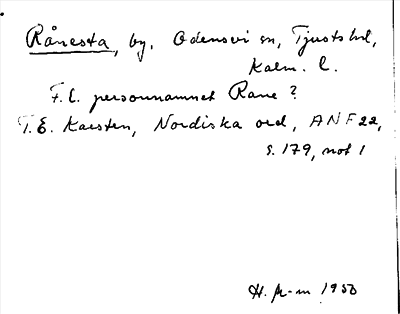 Rånesta, by, Odensvi sn, Tjusts hd,
Kalm. l.
F.l. personnamnet Rane?
T.E. Karsten, Nordiska ord, ANF 22,
s. 179, not 1
H. 1950